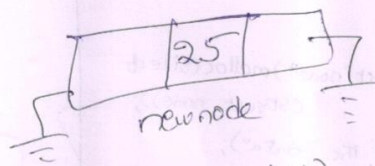 25
newnode